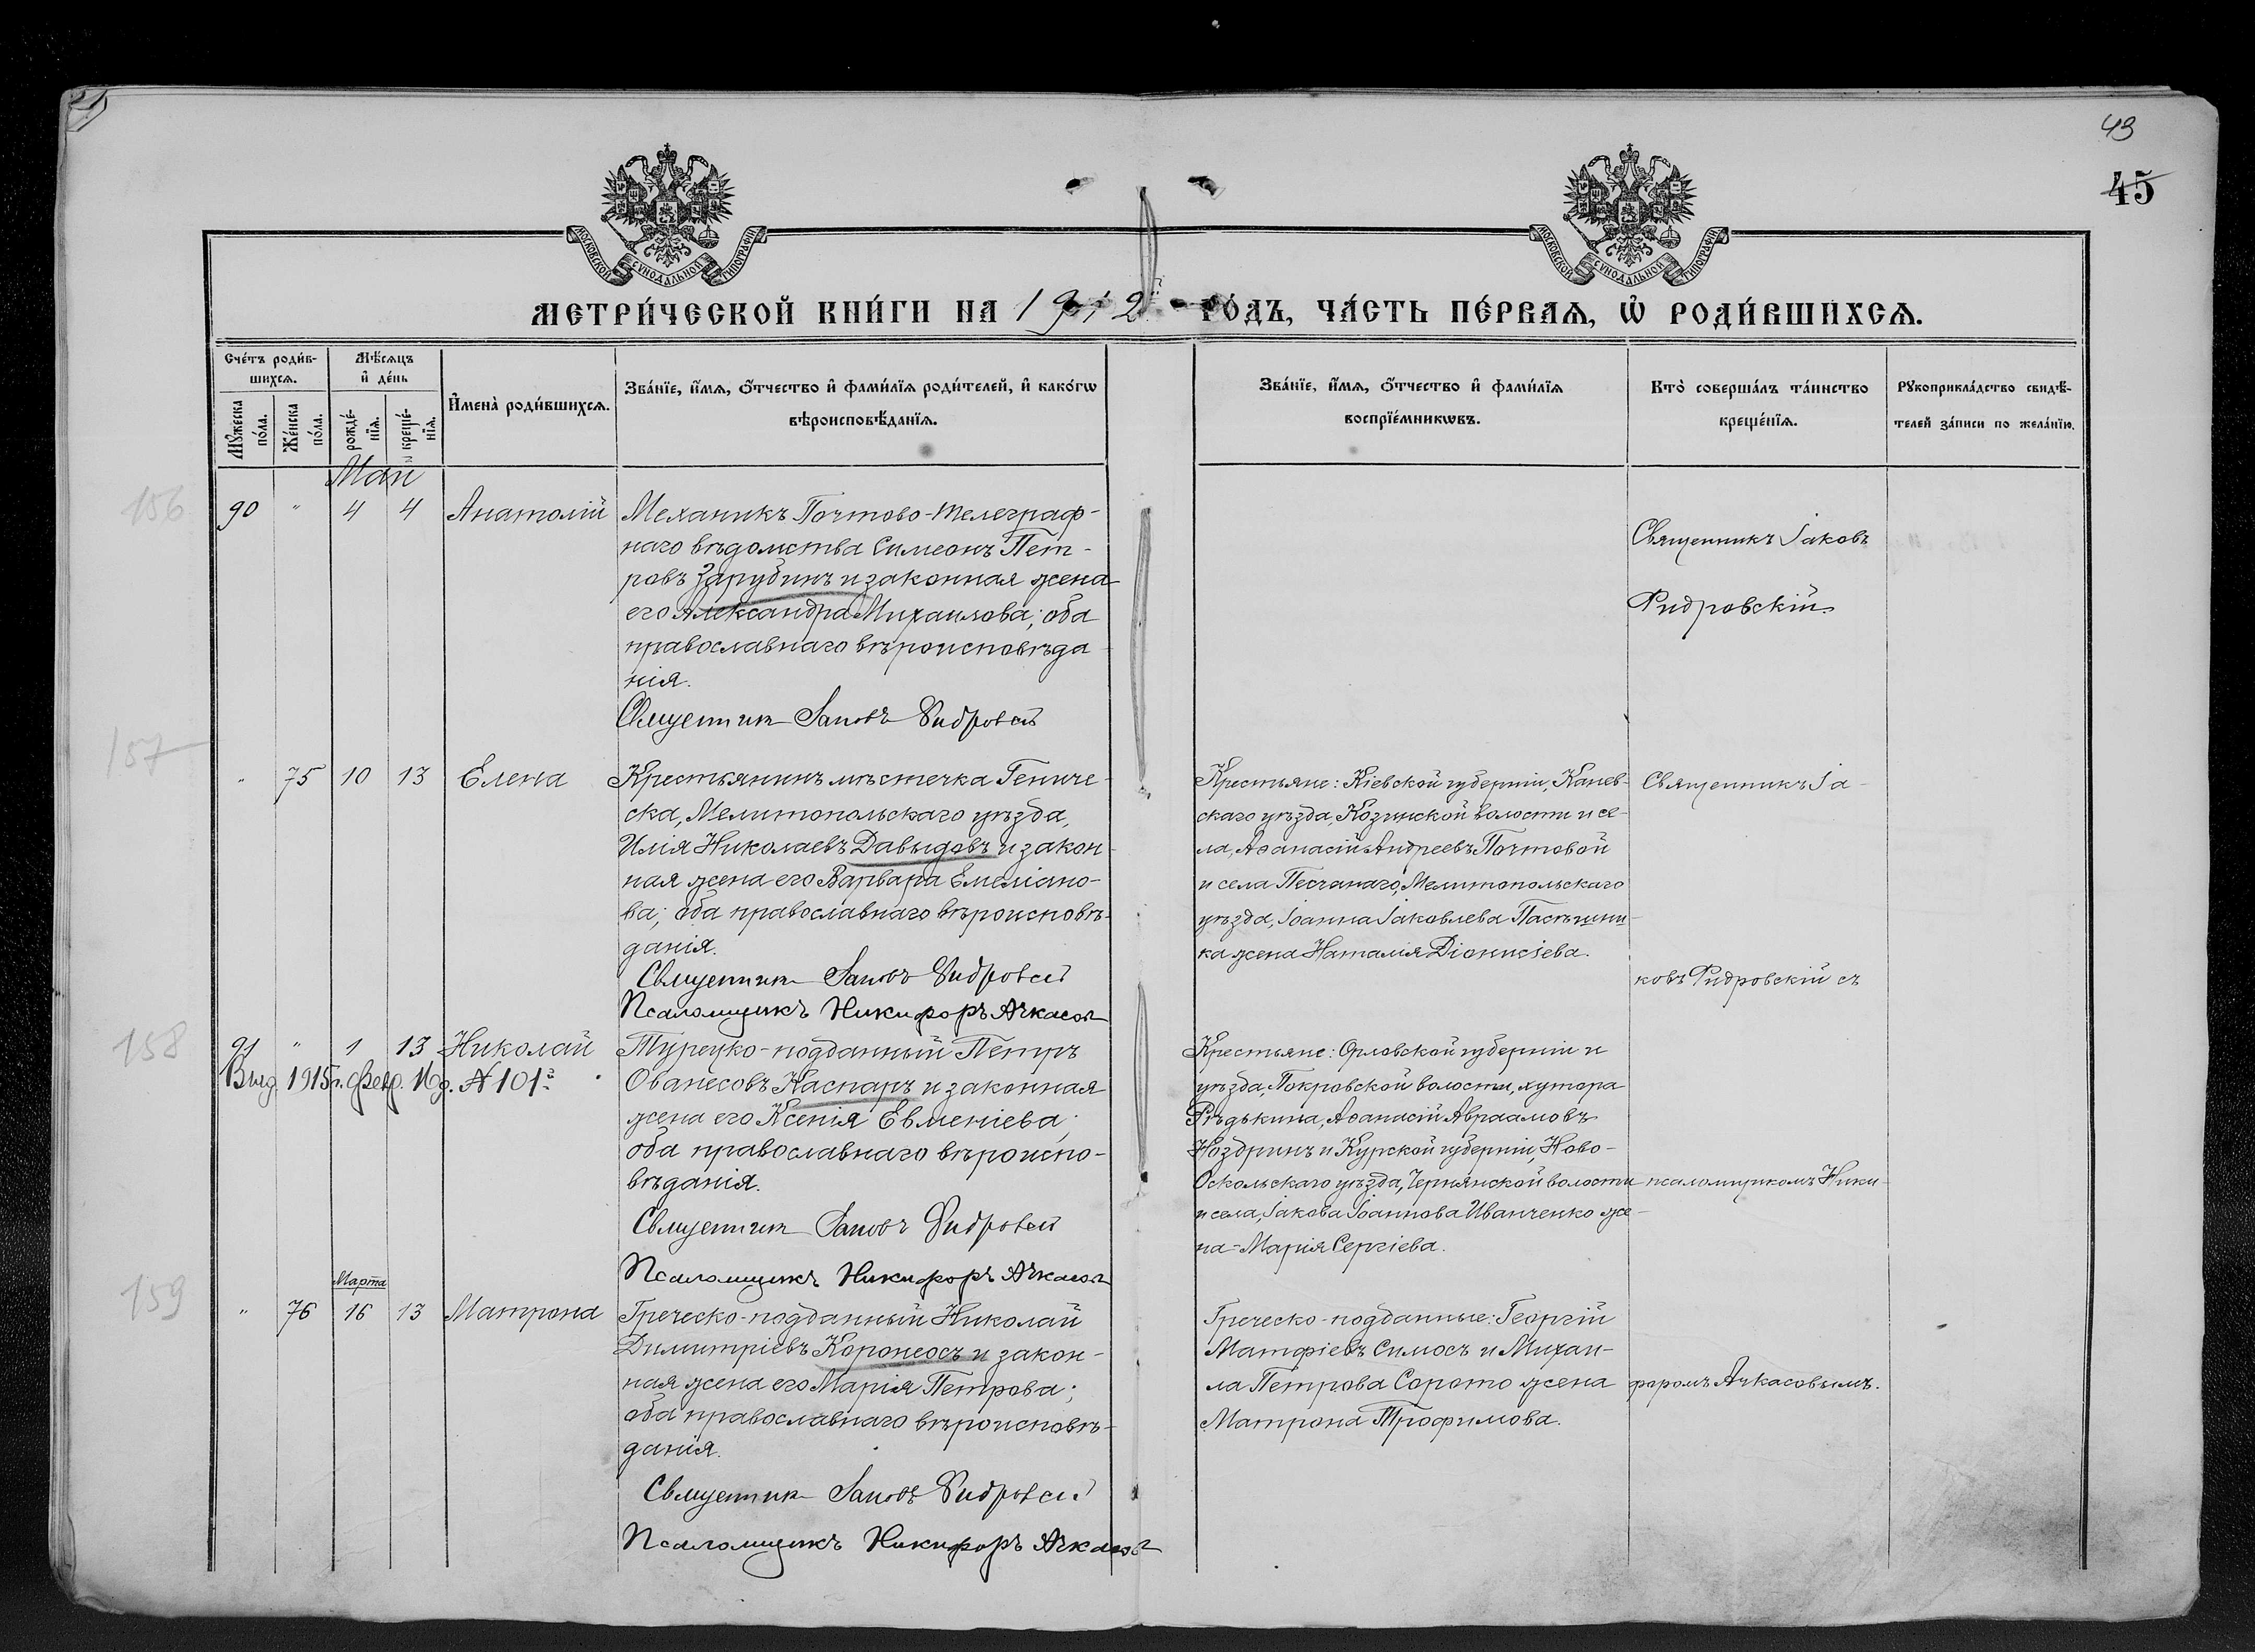 49
45
МОСКОВСКОЙ СУНОДАЛЬНОЙ ТИПОГРАФІИ
МОСКОВСКОЙ СУНОДАЛЬНОЙ ТИПОГРАФІИ
МЕТРИ́ЧЕСКОЙ КНИ́ГИ НА 1912й ГО́ДЪ, ЧА́СТЬ ПЕ́РВАѦ, Ѡ҆ РОДИ́ВШИХСѦ.
Сче́тъ роди́в-
шихсѧ.
Мꙋ́жеска по́ла.
Же́нска по́ла.
Мѣ́сѧцъ
и҆ де́нь
рожде́-нїѧ.
креще́-нїѧ.
И҆мена̀ роди́вшихсѧ.
Зва́нїе, и҆́мѧ, о҆́тчество и҆ фами́лїѧ роди́телей, и҆ како́гѡ
вѣроисповѣ́данїѧ.
Зва́нїе, и҆́мѧ, о҆́тчество и҆ фами́лїѧ
воспрїе́мникѡвъ.
Кто̀ соверша́лъ та́инство
креще́нїѧ.
Рꙋкоприкла́дство свидѣ́-
телей за́писи по жела́нїю.
Май
156
90 " 4 4 Анатолій
Механикъ Почтово-телеграф-
наго вѣдомства Симеонъ Пет-
ровъ Зарубинъ и законная жена
его Александра Михаилова; оба
православнаго вѣроисповѣда
нія.
Священник Іаковъ Ридровскій
Священникъ Іаковъ
Ридровскій.
157
" 75 10 13 Елена
Крестьянинъ мѣстечка Гениче-
ска, Мелитопольскаго уѣзда,
Илія Николаевъ Давыдовъ и закон-
ная жена его Варвара Емеліано-
ва; оба православнаго вѣроисповѣ-
данія.
Священник Іаковъ Ридровскій
Псаломщикъ Никифоръ Ачкасов
Крестьяне: Кіевской губерніи, Канев-
скаго уѣзда, Козинской волости и се-
ла, Аѳанасій Андреевъ Почтовой
и села Песчанаго, Мелитопольскаго
уѣзда, Іоанна Іаковлева Пасѣшни-
ка жена Наталія Діонисіева.
Священникъ Іа-
ковъ Ридровскій съ
158
91 " 1 13 Николай
Выд. 1915г. Февр. 16д. № 101й.
Турецко-подданный Петръ
Ованесовъ Каспаръ и законная
жена его Ксенія Евменіева;
оба православнаго вѣроиспо-
вѣданія.
Священник Іаковъ Ридровскій
Псаломщикъ Никифоръ Ачкасов
Крестьяне: Орловской губерніи и
уѣзда, Покровской волости, хутора
Рѣдькина, Аѳанасій Авраамовъ
Ноздринъ и Курской губерніи, Ново-
Оскольскаго уѣзда, Чернянской волости
и села, Іакова Іоаннова Иванченко же-
на - Марія Сергіева.
псаломщикомъ Ники-
159
Марта
" 76 16 13 Матрона
Греческо-подданный Николай
Димитріевъ Коронеосъ и закон-
ная жена его Марія Петрова;
оба православнаго вѣроисповѣ-
данія.
Священник Іаковъ Ридровскій
Псаломщикъ Никифоръ Ачкасов
Греческо-подданные: Георгій
Матфіевъ Симосъ и Михаи-
ла Петрова Сорото жена
Матрона Трофимова.
форомъ Ачкасовымъ.